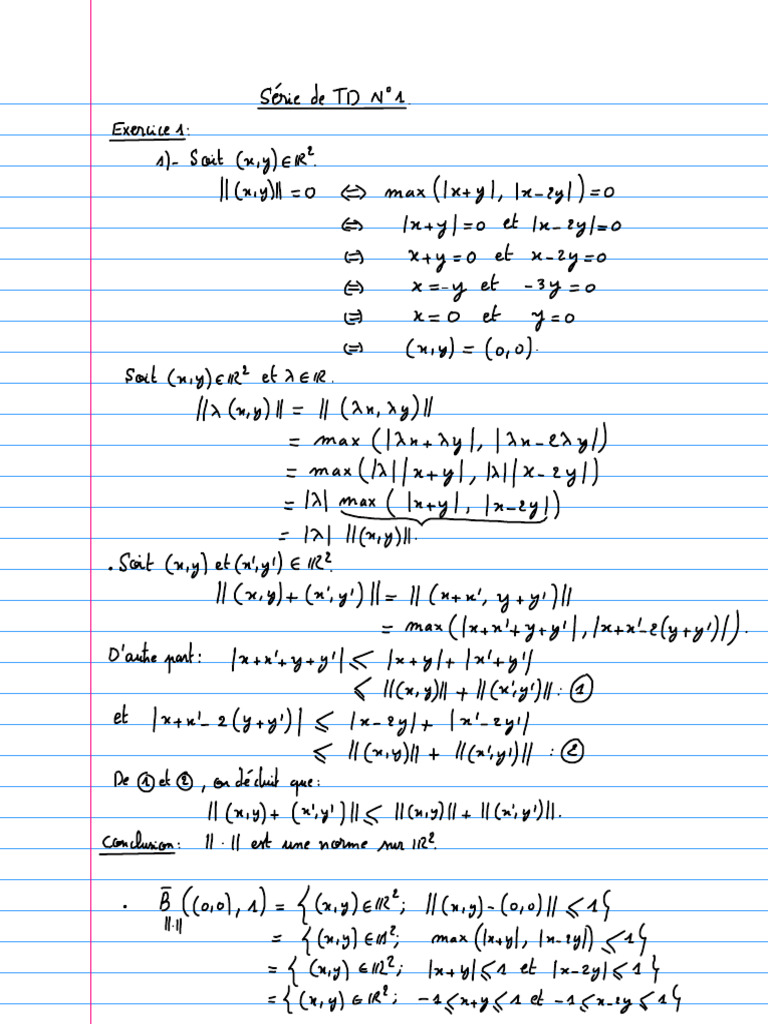 Série de TD N°1
Exercice 1:
1)- Soit (x,y)∈ℝ².
||(x,y)||=0 ⟺ max(|x+y|, |x-2y|)=0
⟺ |x+y|=0 et |x-2y|=0
⟺ x+y=0 et x-2y=0
⟺ x=-y et -3y=0
⟺ x=0 et y=0
⟺ (x,y)=(0,0).
Soit (x,y)∈ℝ² et λ∈ℝ.
||λ(x,y)|| = ||(λx,λy)||
= max(|λx+λy|, |λx-2λy|)
= max(|λ||x+y|, |λ||x-2y|)
= |λ| max(|x+y|, |x-2y|)
= |λ| ||(x,y)||.
. Soit (x,y) et (x',y') ∈ ℝ².
||(x,y)+(x',y')|| = ||(x+x', y+y')||
= max(|x+x'+y+y'|, |x+x'-2(y+y')|).
D'autre part: |x+x'+y+y'| ⩽ |x+y|+|x'+y'|
⩽ ||(x,y)||+||(x',y')|| : ①
et |x+x'-2(y+y')| ⩽ |x-2y|+|x'-2y'|
⩽ ||(x,y)||+||(x',y')|| : ②
De ① et ②, on déduit que:
||(x,y)+(x',y')|| ⩽ ||(x,y)||+||(x',y')||.
Conclusion: ||.|| est une norme sur ℝ².
. B̄||.||((0,0),1) = {(x,y)∈ℝ²; ||(x,y)-(0,0)|| ⩽ 1}
= {(x,y)∈ℝ²; max(|x+y|, |x-2y|) ⩽ 1}
= {(x,y)∈ℝ²; |x+y| ⩽ 1 et |x-2y| ⩽ 1}
= {(x,y)∈ℝ²; -1 ⩽ x+y ⩽ 1 et -1 ⩽ x-2y ⩽ 1}